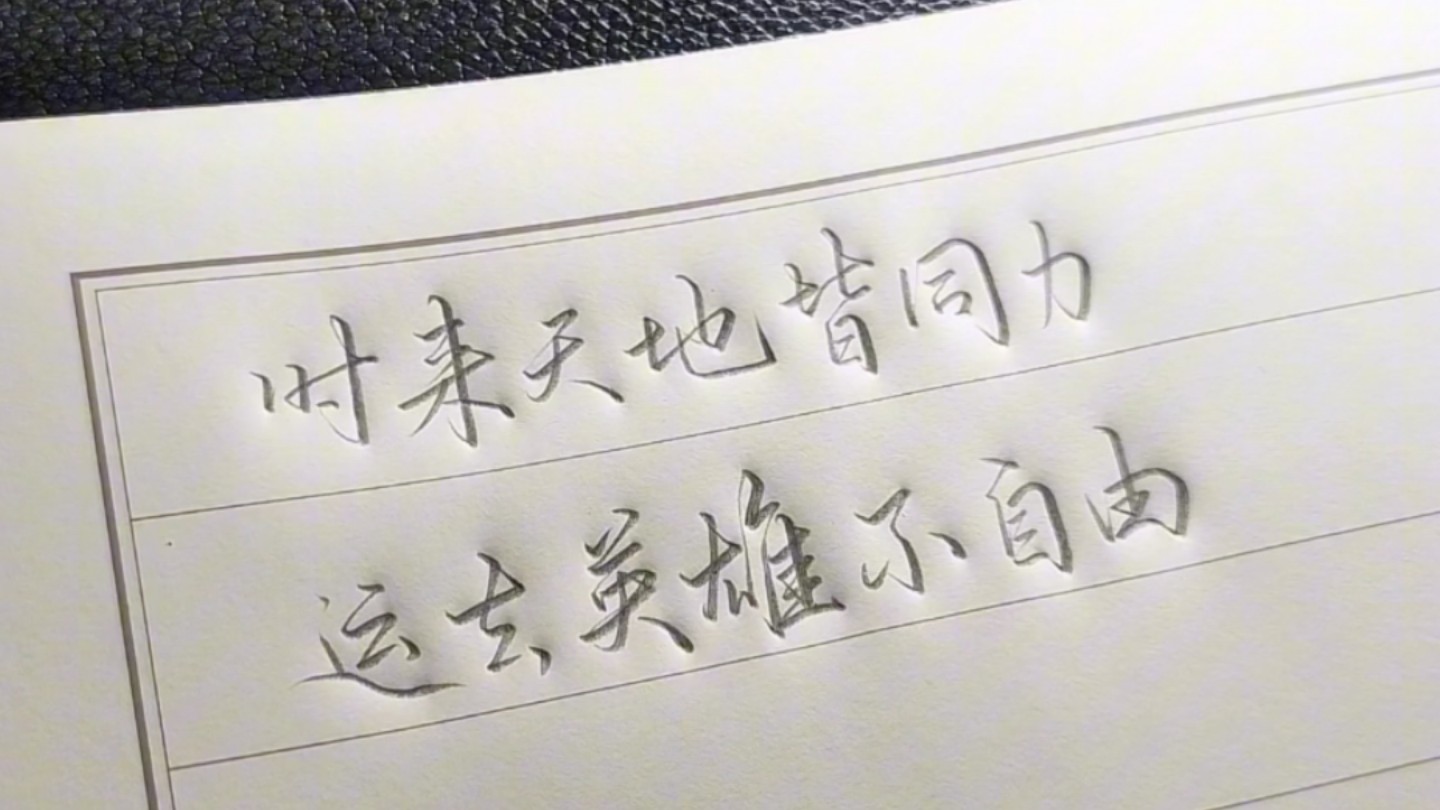 时来天地皆同力
运去英雄不自由